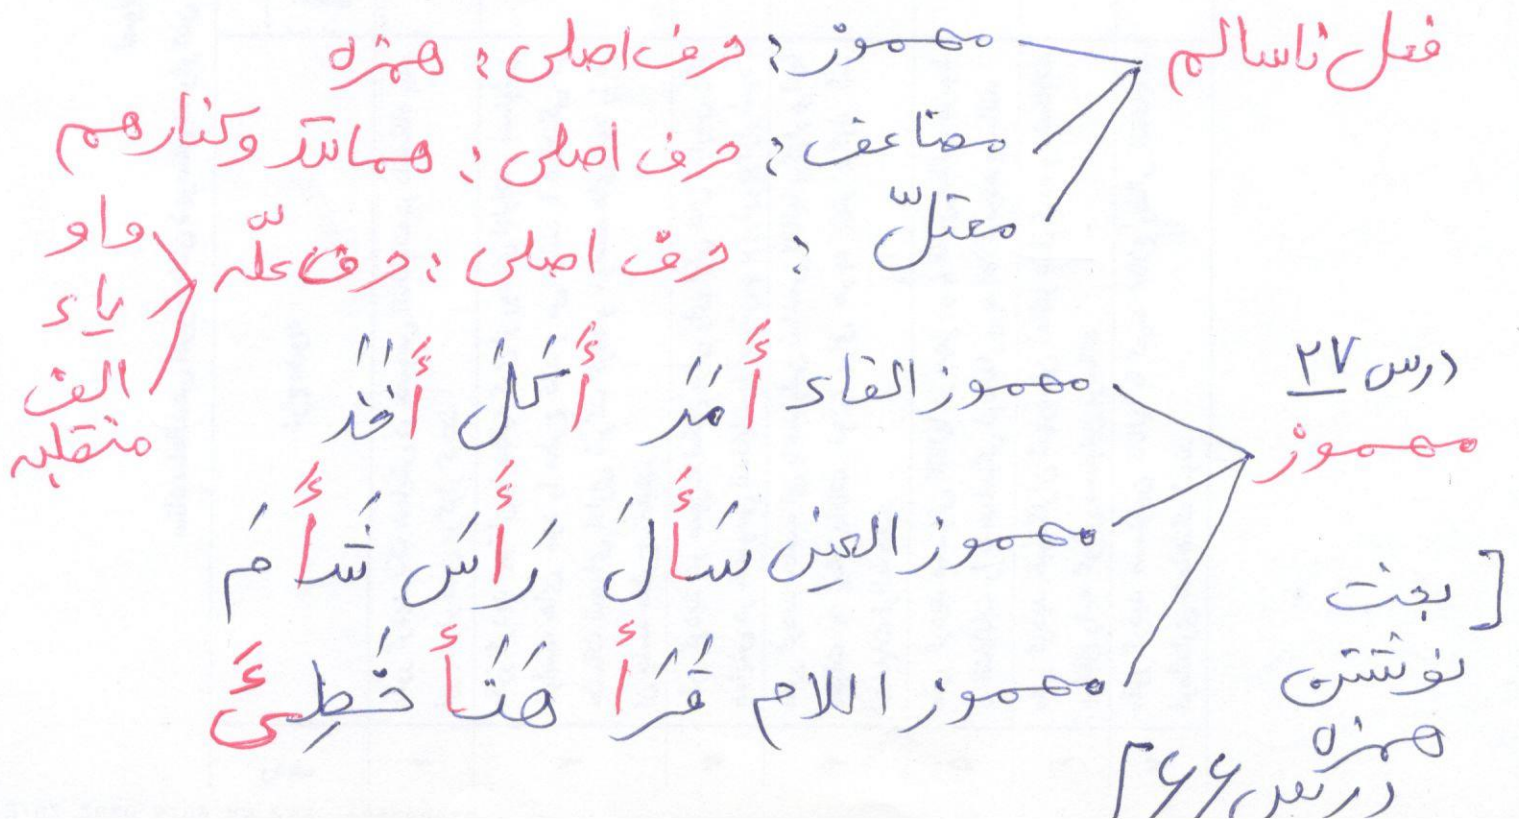 فعل ناسالم
مهموز : حرف اصلی : همزه
مضاعف : حرف اصلی : همانند و کنار هم
معتلّ : حرف اصلی : حرف علّه
واو
یاء
الف
منقلبه
درس ۲۷
مهموز
مهموز الفاء أَمَرَ أَکَلَ أَخَذَ
مهموز العین سَأَلَ رَأَسَ شَأَمَ
مهموز اللام قَرَأَ هَنَأَ خَطِئَ
[بحث
نوشتن
همزه